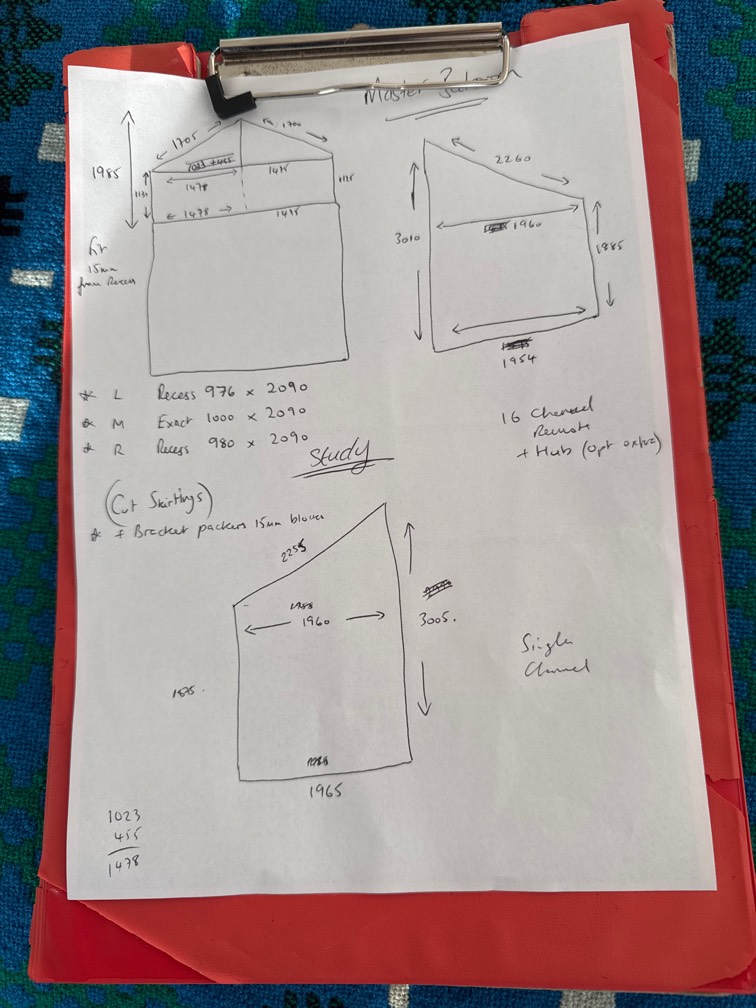 Master
1705
1700
1985
1023 + 455
1478
1475
1130
1125
1478
1475
fix
15mm
from Recess
2260
3010
1960
1985
1954
* L Recess 976 x 2090
* M Exact 1000 x 2090
* R Recess 980 x 2090
16 Channel
Remote
+ Hub (opt extra)
Study
(Cut Skirtings)
* + Bracket packers 15mm blocks
2255
1988
1960
3005.
Single
Channel
1965
1023
455
1478